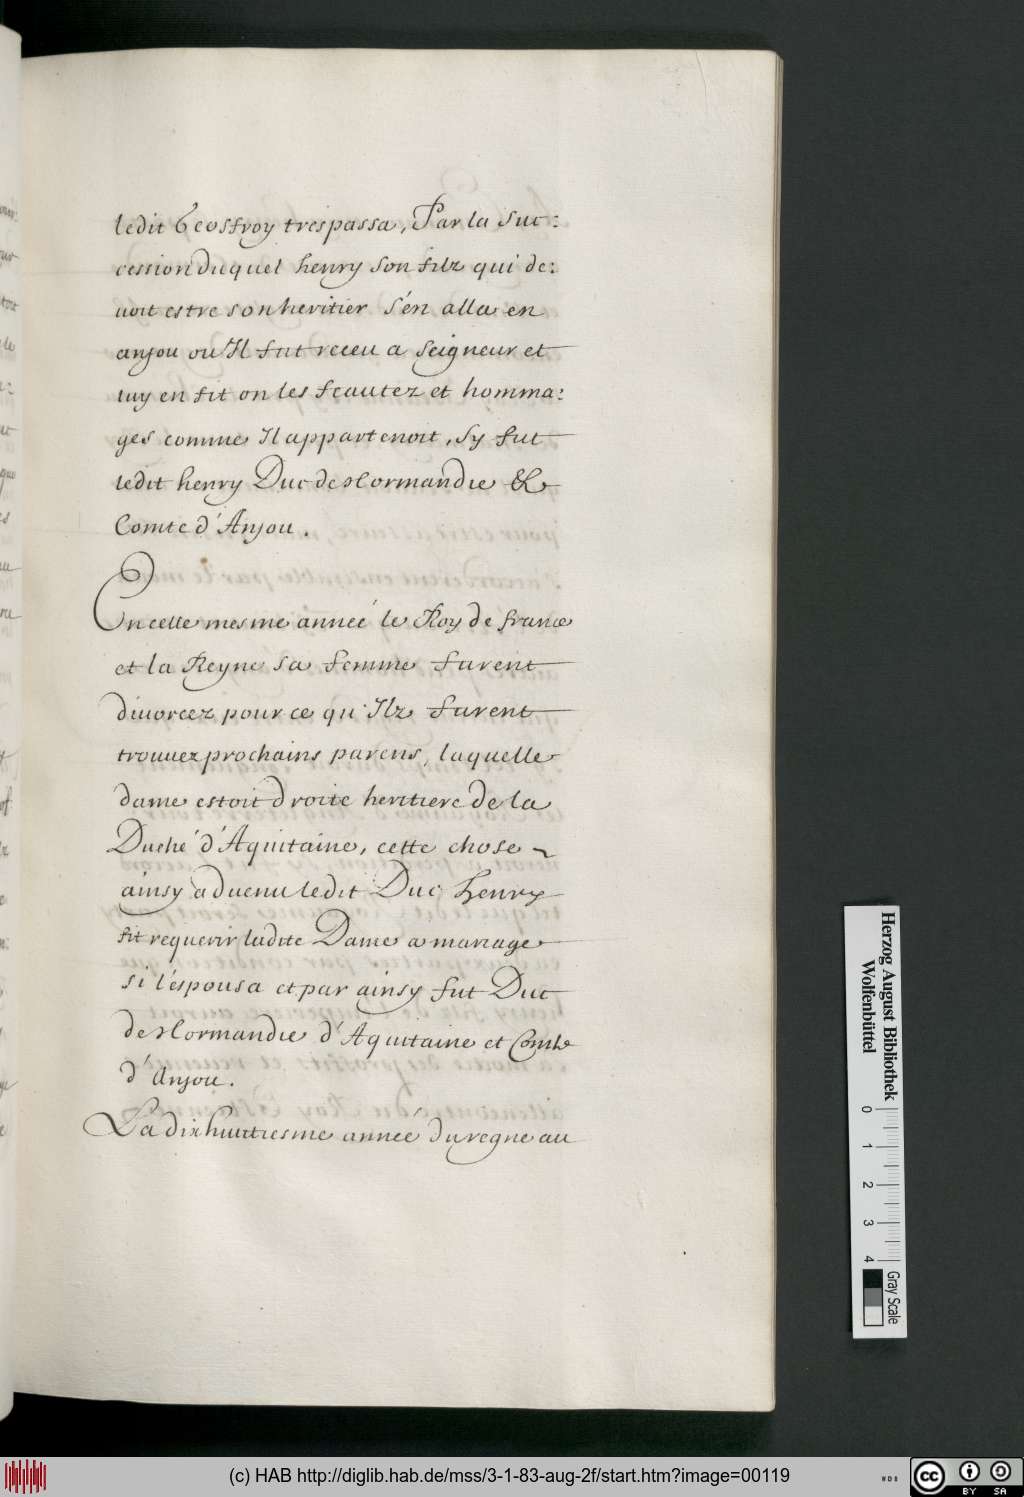 ledit Geoffroy trespassa, Par la suc:
cession duquel henry son filz qui de:
uoit estre son heritier s'en alla en
anjou ou Il fut receu a seigneur et
luy en fit on les feautez et homma:
ges comme Il appartenoit, sy fut
ledit henry Duc de Normandie &
Comte d'Anjou.
En celle mesme anneé le Roy de france
et la Reyne sa femme furent
diuorcez pour ce qu'Ilz furent
trouuez prochains parens, laquelle
dame estoit droite heritiere de la
Duché d'Aquitaine, cette chose
ainsy aduenu ledit Duc henry
fit requerir ladite Dame a mariage
si l'espousa et par ainsy fut Duc
de Normandie d'Aquitaine et Comte
d'Anjou.
La dix huitiesme anneé du regne au
Herzog August Bibliothek
Wolfenbüttel
0 1 2 3 4
Gray Scale
(c) HAB http://diglib.hab.de/mss/3-1-83-aug-2f/start.htm?image=00119
cc BY SA